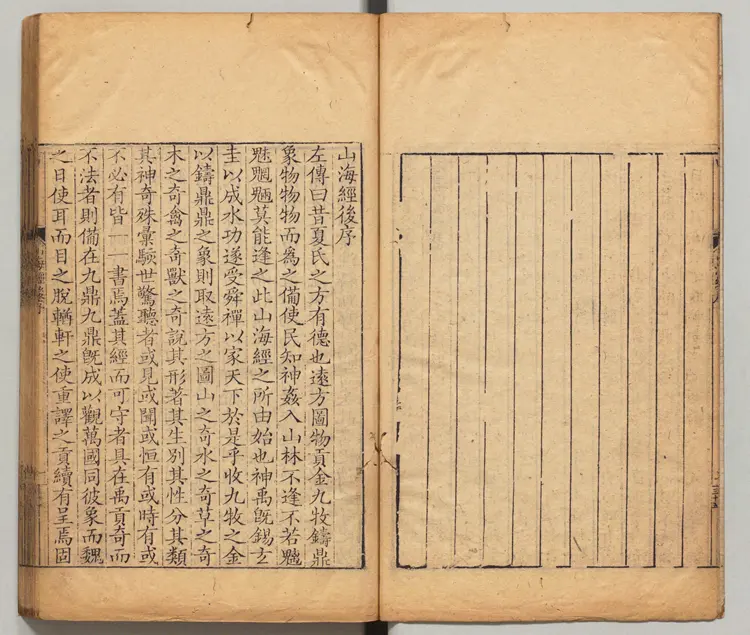 山海經後序
左傳曰昔夏氏之方有德也遠方圖物貢金九牧鑄鼎
象物物物而為之備使民知神姦入山林不逢不若魑
魅魍魎莫能逢之此山海經之所由始也神禹旣錫玄
圭以成水功遂受舜禪以家天下於是乎收九牧之金
以鑄鼎鼎之象則取遠方之圖山之奇水之奇草之奇
木之奇禽之奇獸之奇說其形著其生別其性分其類
其神奇殊彙駭世驚聽者或見或聞或恒有或時有或
不必有皆一一書焉蓋其經而可守者具在禹貢奇而
不法者則備在九鼎九鼎旣成以觀萬國同彼象而魏
之日使耳而目之脫輶軒之使重譯之貢續有呈焉固